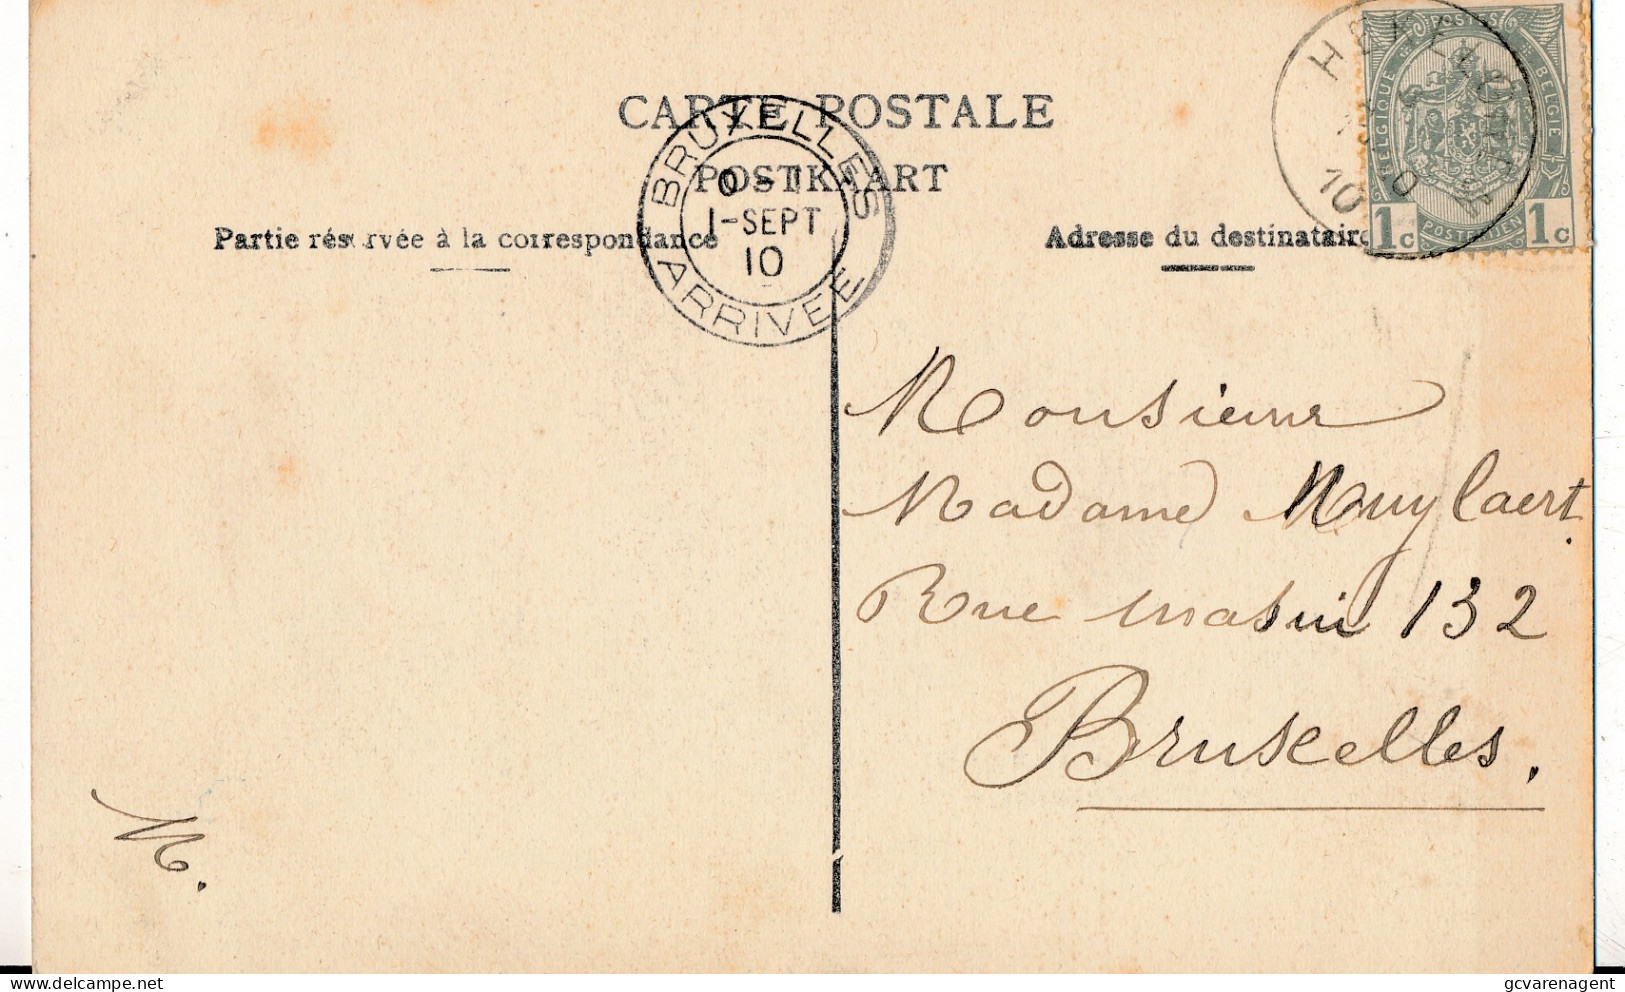 CARTE POSTALE
POSTKAART
Partie réservée à la correspondance
Adresse du destinataire
BRUXELLES
1-SEPT
10
ARRIVEE
10
POSTES
BELGIQUE
BELGIE
POSTERIJEN
1c 1c
Monsieur
Madame Muylaert.
Rue Masui 132
Bruxelles.
M.
delcampe.net
gcvarenagent